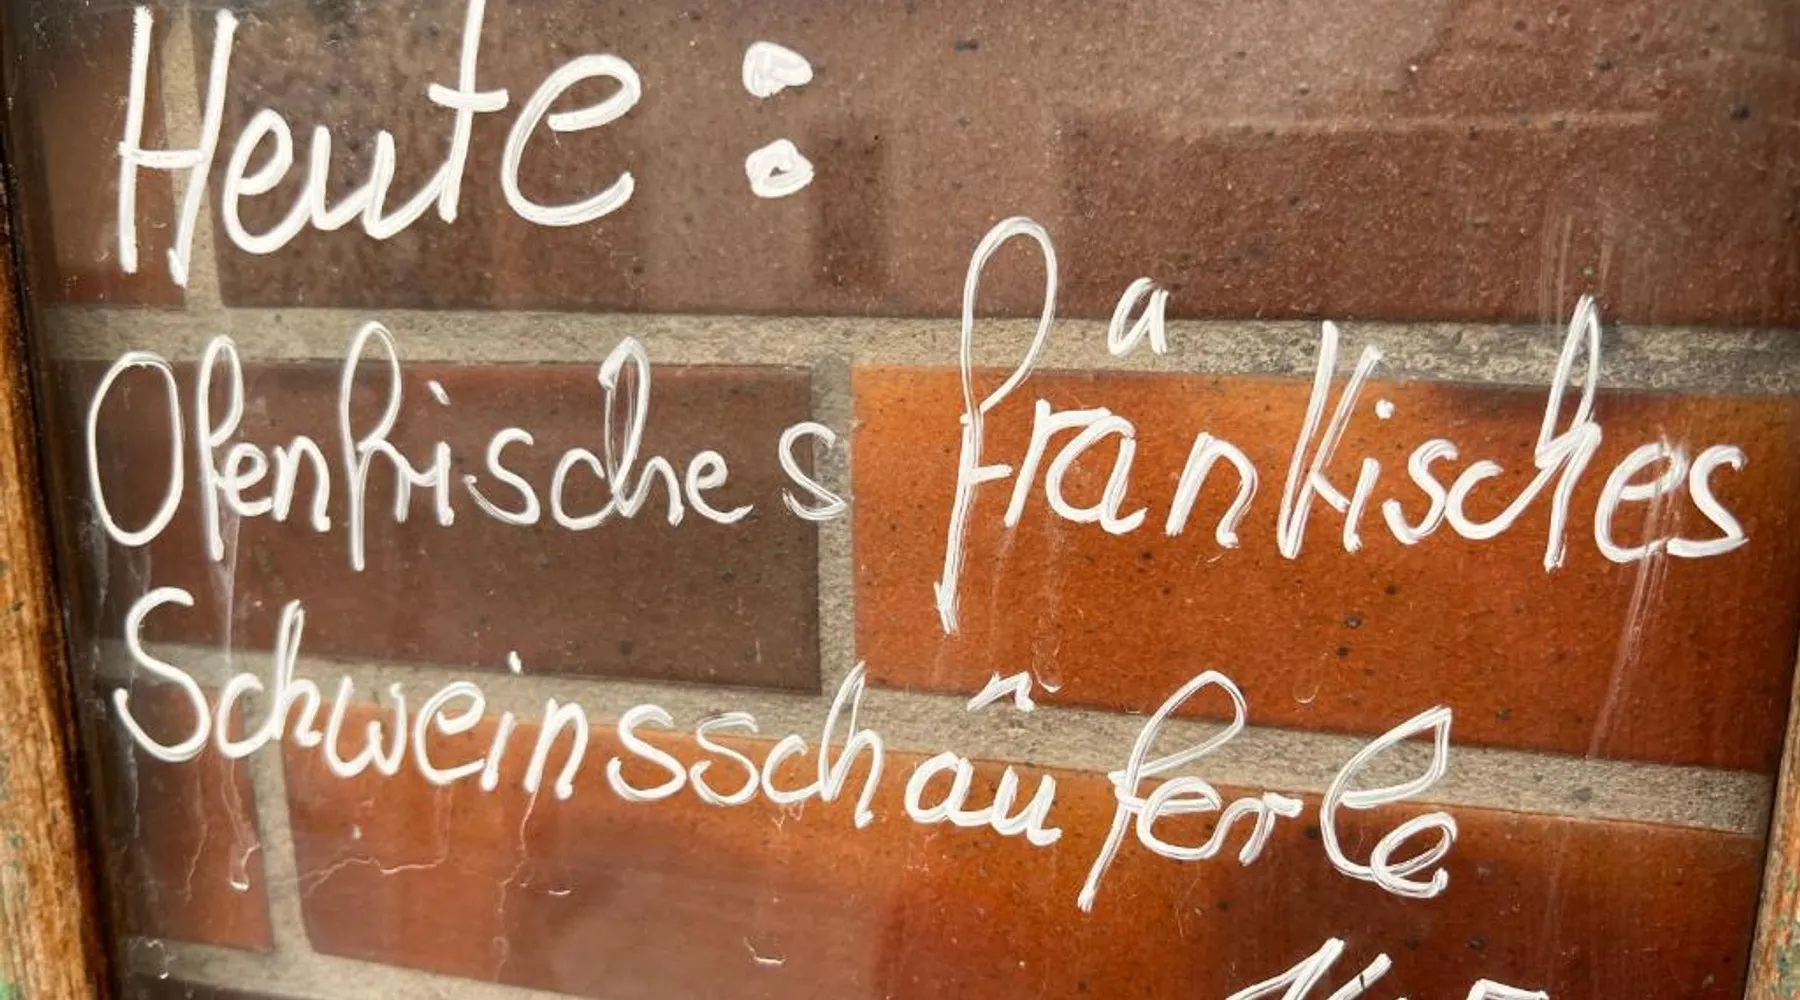 Heute:
Ofenfrisches fränkisches
Schweinsschäuferle